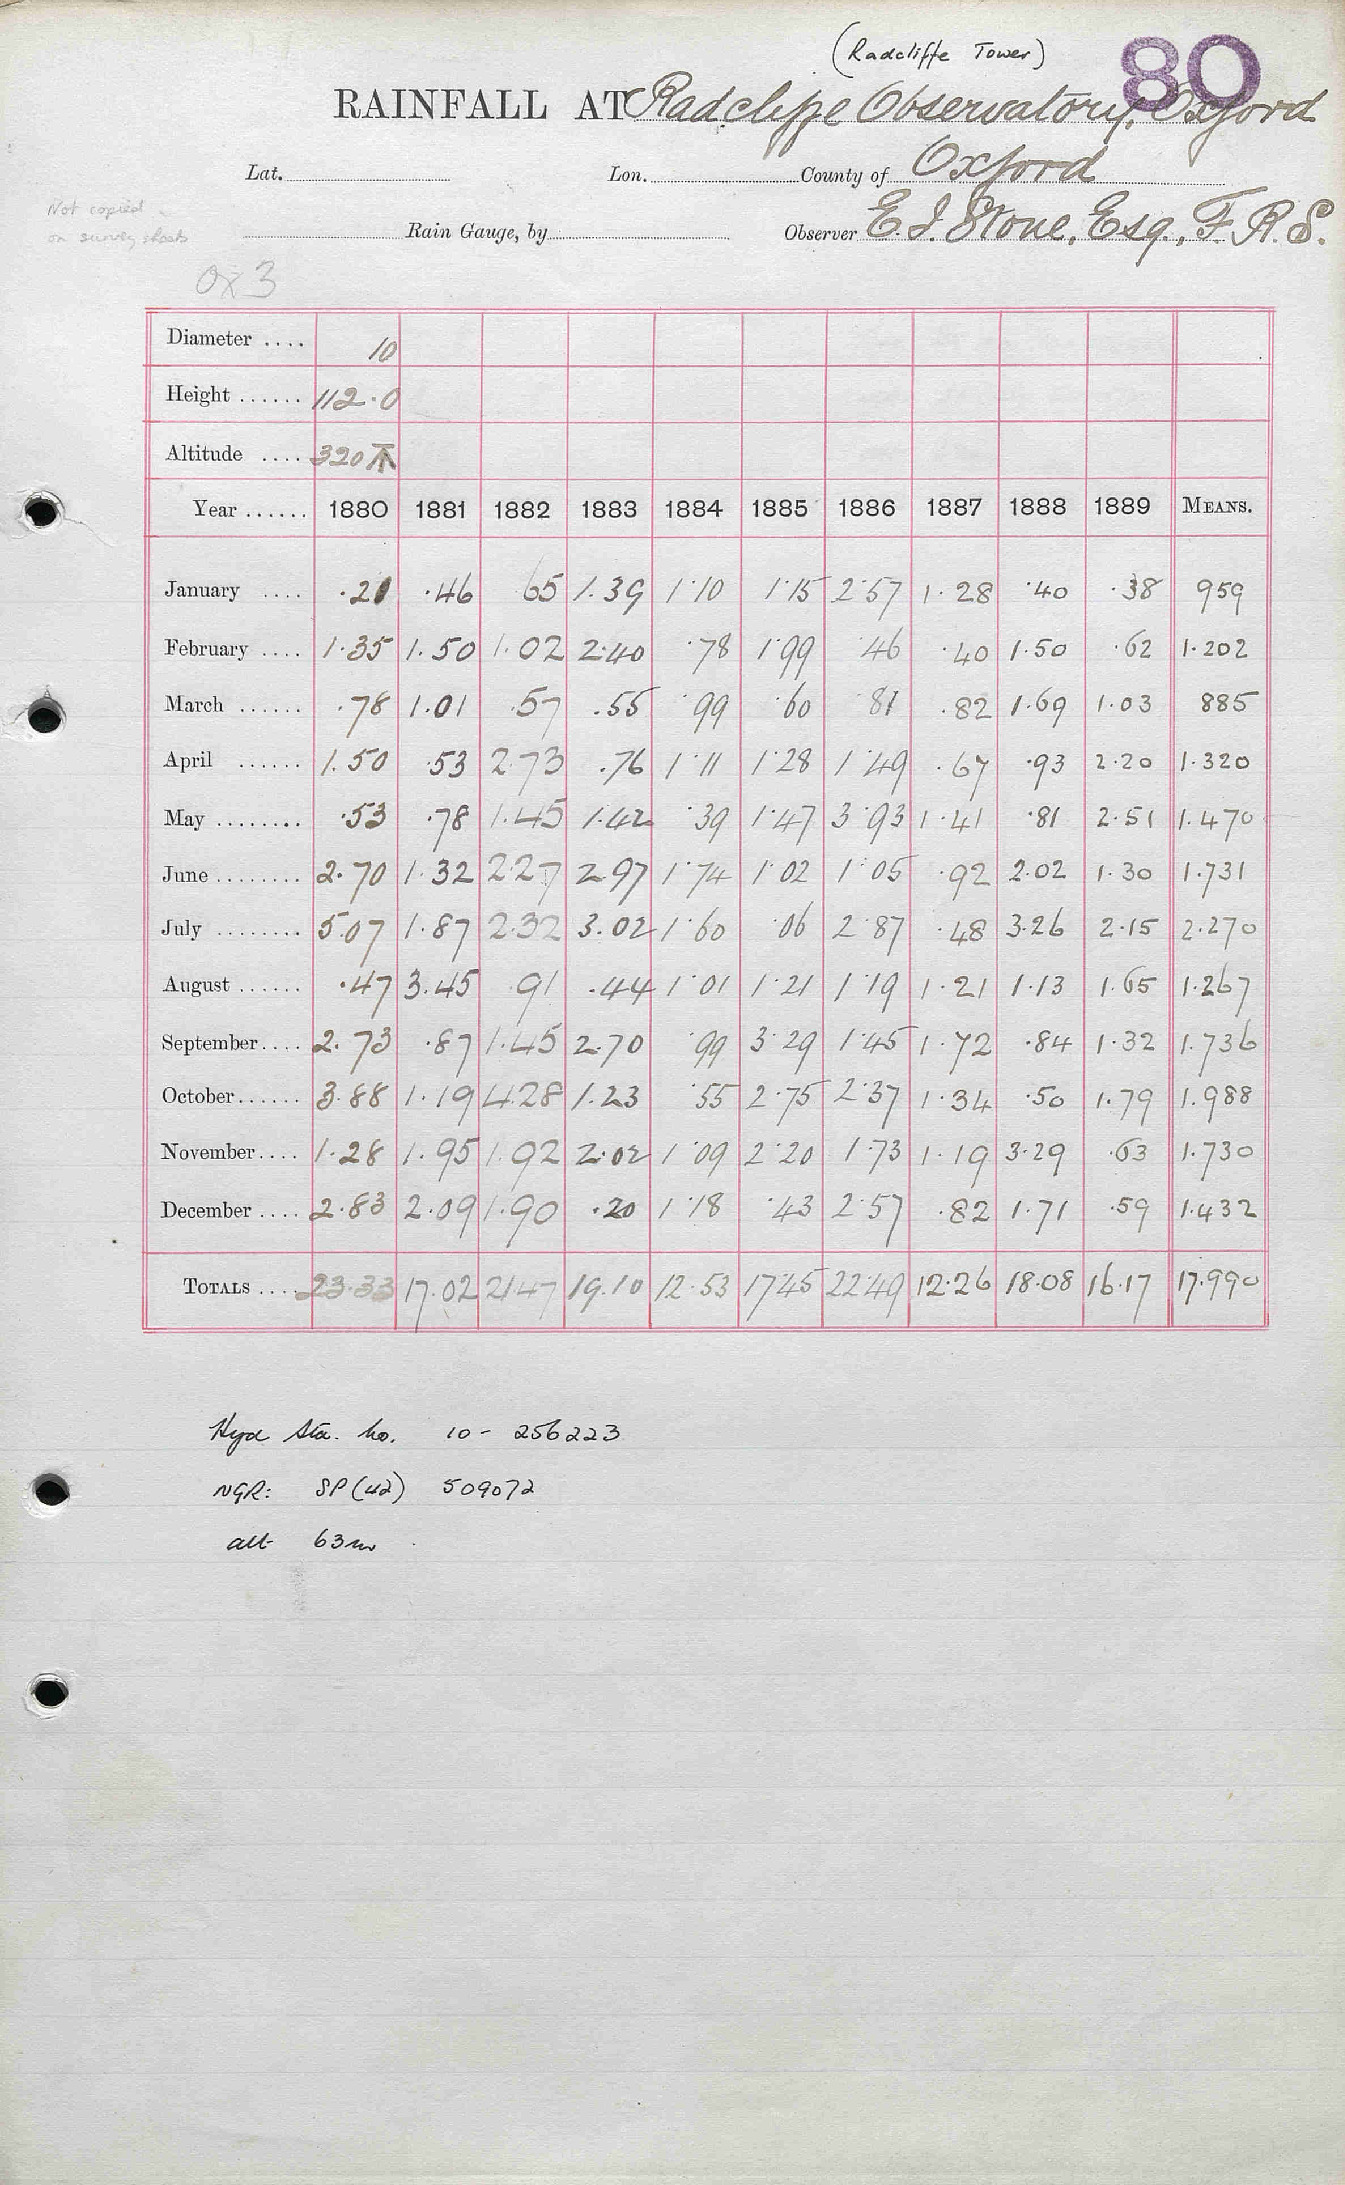 (Radcliffe Tower)
80
RAINFALL AT Radcliffe Observatory, Oxford
Lat. Lon. County of Oxford
Not copied
on survey sheets
Rain Gauge, by Observer E. J. Stone, Esq., F.R.S.
Ox 3
Diameter .... 10
Height ...... 112.0
Altitude .... 320
Year ...... 1880 1881 1882 1883 1884 1885 1886 1887 1888 1889 MEANS.
January .... .21 .46 65 1.39 1.10 1.15 2.57 1.28 .40 .38 959
February .... 1.35 1.50 1.02 2.40 .78 1.99 .46 .40 1.50 .62 1.202
March ...... .78 1.01 .57 .55 .99 .60 .81 .82 1.69 1.03 885
April ...... 1.50 .53 2.73 .76 1.11 1.28 1.49 .67 .93 2.20 1.320
May ........ .53 .78 1.45 1.42 .39 1.47 3.93 1.41 .81 2.51 1.470
June ........ 2.70 1.32 2.27 2.97 1.74 1.02 1.05 .92 2.02 1.30 1.731
July ........ 5.07 1.87 2.32 3.02 1.60 .06 2.87 .48 3.26 2.15 2.270
August ...... .47 3.45 .91 .44 1.01 1.21 1.19 1.21 1.13 1.65 1.267
September.... 2.73 .87 1.45 2.70 .99 3.29 1.45 1.72 .84 1.32 1.736
October...... 3.88 1.19 4.28 1.23 .55 2.75 2.37 1.34 .50 1.79 1.988
November.... 1.28 1.95 1.92 2.02 1.09 2.20 1.73 1.19 3.29 .63 1.730
December .... 2.83 2.09 1.90 .20 1.18 .43 2.57 .82 1.71 .59 1.432
TOTALS .... 23.33 17.02 21.47 19.10 12.53 17.45 22.49 12.26 18.08 16.17 17.990
Hyd Sta. No. 10 - 256223
NGR: SP (42) 509072
alt 63m